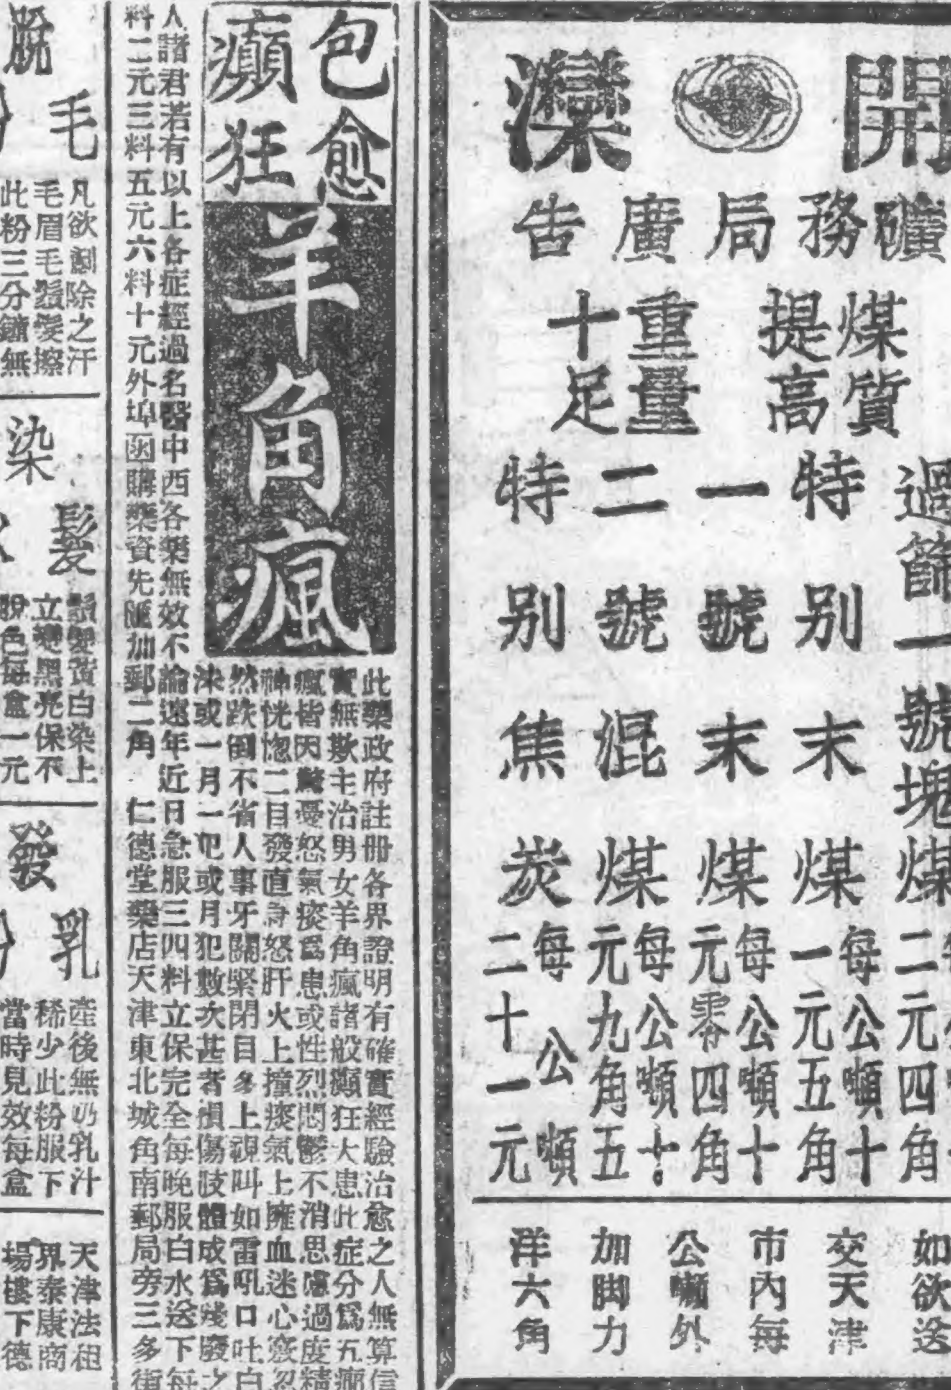 開灤
礦務局廣告
煤質提高
重量十足
過篩一號塊煤
二元四角
特別末煤
每公噸十一元五角
一號末煤
每公噸十元零四角
二號混煤
每公噸十元九角五
特別焦炭
每公噸二十一元
如欲送
交天津
市內每
公噸外
加脚力
洋六角
包愈
癲狂
羊角瘋
此藥政府註冊各界證明有確實經驗治愈之人無算信
實無欺主治男女羊角瘋諸般癲狂大患此症分爲五癇
瘋皆因驚憂怒氣痰爲患或性烈悶鬱不消思慮過度精
神恍惚二目發直急怒肝火上撞痰氣上擁血迷心竅忽
然跌倒不省人事牙關緊閉目多上視叫如雷吼口吐白
沫或一月一犯或月犯數次甚者損傷肢體成爲殘廢之
人諸君若有以上各症經過名醫中西各藥無效不論遠年近日急服三四料立保完全每晚服白水送下每
料二元三料五元六料十元外埠函購藥資先匯加郵二角 仁德堂藥店天津東北城角南郵局旁三多街
毛
脫
凡欲剷除之汗
毛眉毛鬚髮擦
此粉三分鐘無
髮
染
鬚髮蒼白染上
立變黑亮保不
脫色每盒一元
乳
發
產後無奶乳汁
稀少此粉服下
當時見效每盒
天津法租
界泰康商
場樓下德